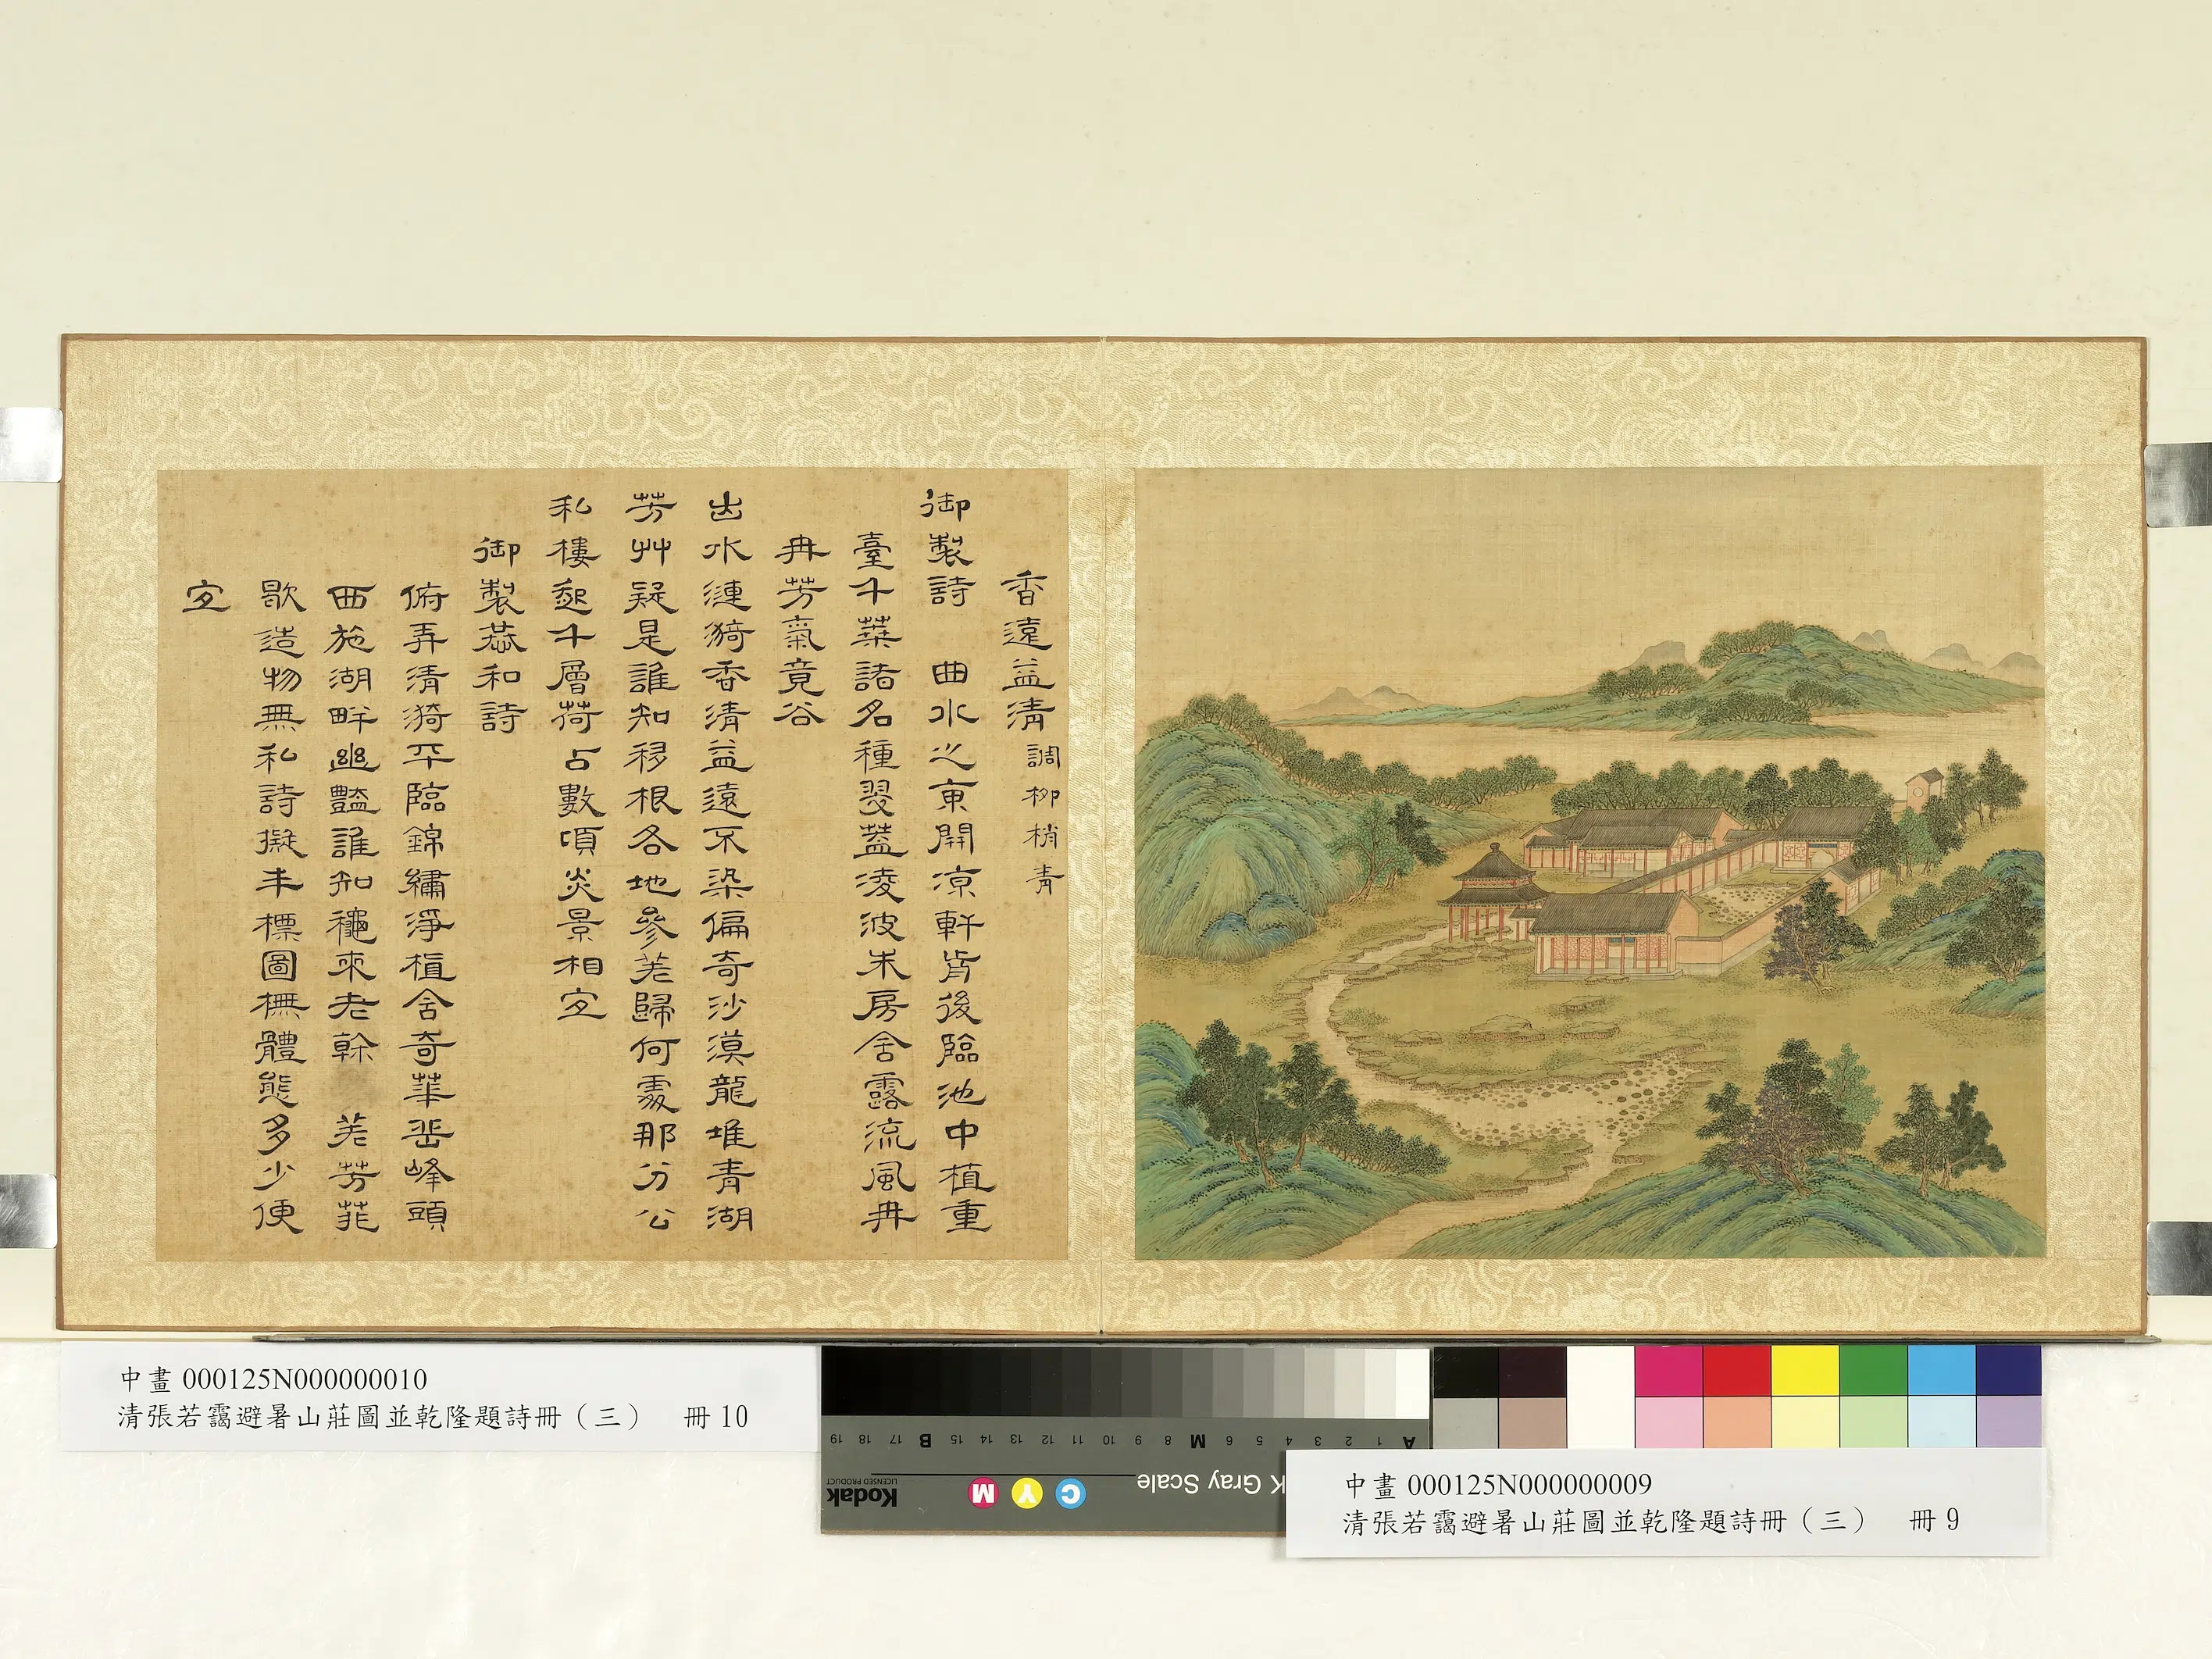 香遠益清 調柳梢青
御製詩 曲水之東開涼軒前後臨池中植重
臺千葉諸名種翠蓋凌波朱房含露流風冉
冉芳氣竟谷
出水漣漪香清益遠不染偏奇沙漠龍堆青湖
芳艸疑是誰知移根各地參差歸何處那分公
私樓起千層荷占數頃炎景相宜
御製恭和詩
俯弄清漪平臨錦繡淨植含奇華岳峰頭
西施湖畔幽豔誰知穠來老榦 差芳菲
歇造物無私詩擬未標圖橅體態多少便
宜
中畫 000125N000000010
清張若靄避暑山莊圖並乾隆題詩冊（三） 冊 10
A 1 2 3 4 5 6 M 8 9 10 11 12 13 14 15 B 17 18 19
K Gray Scale
C Y M
Kodak
LICENSED PRODUCT
中畫 000125N000000009
清張若靄避暑山莊圖並乾隆題詩冊（三） 冊 9